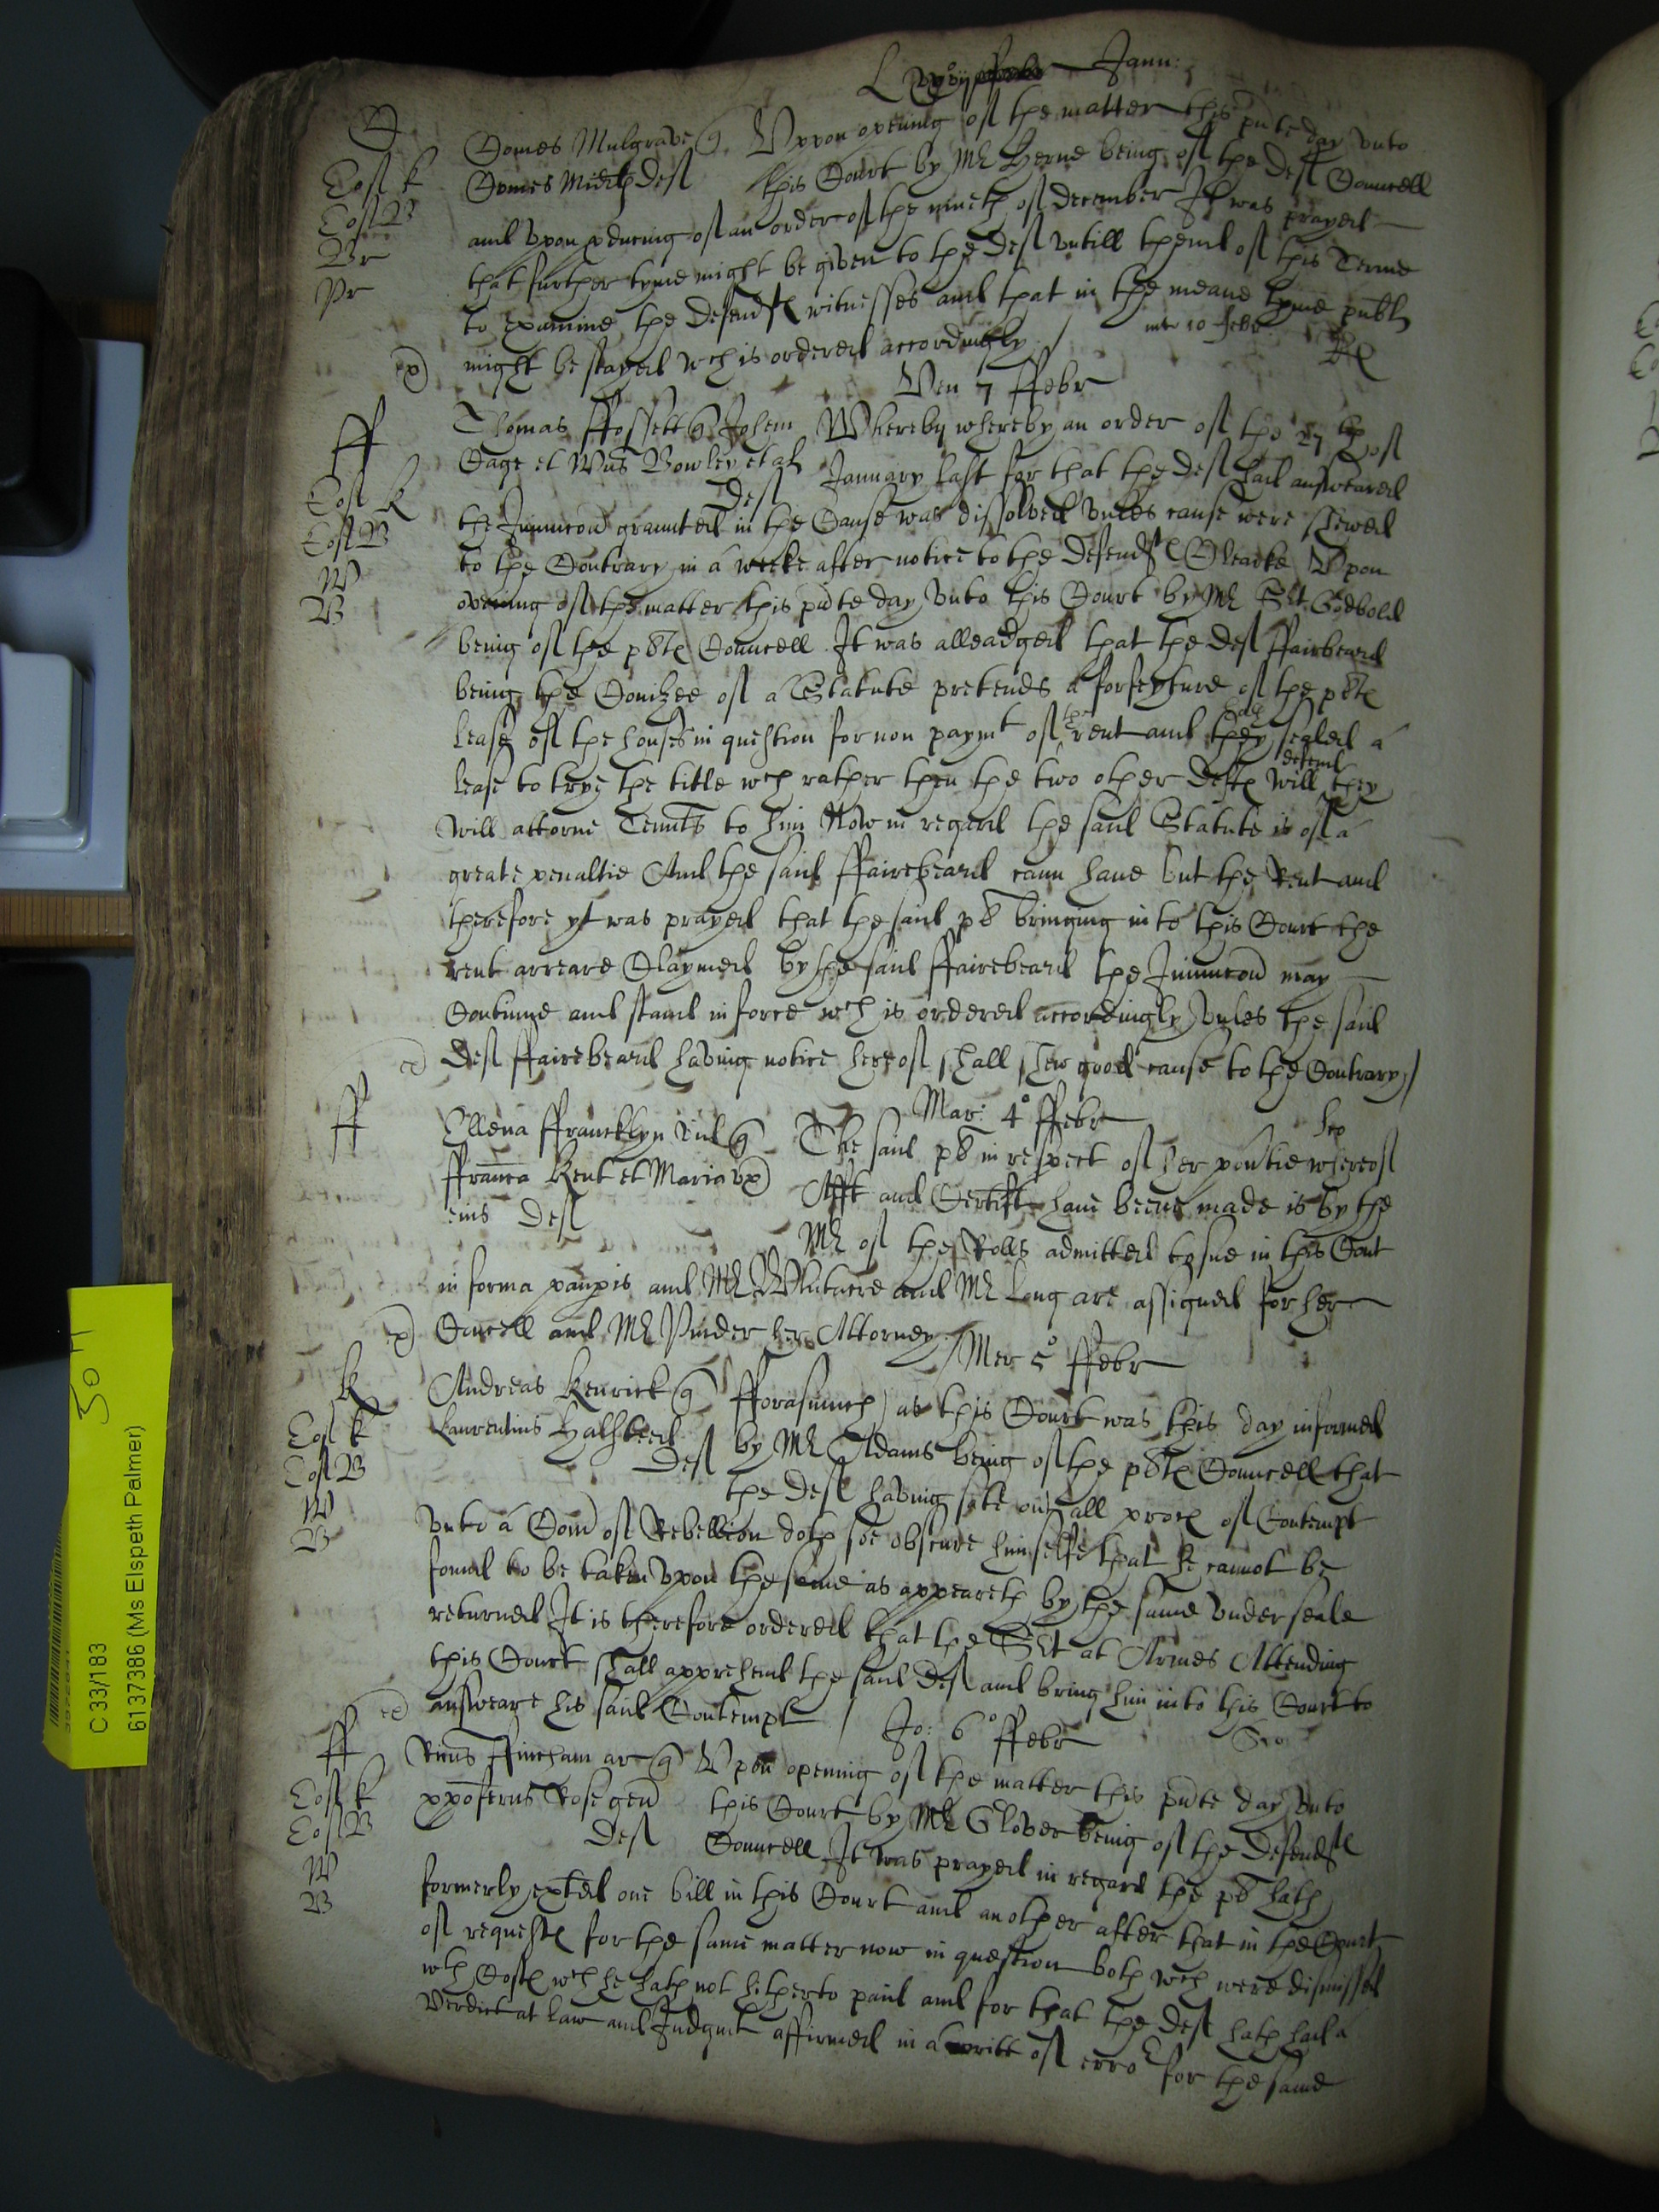 Janu:
C
Comes Mulgrave q Uppon opening of the matter this pnte day unto
Cos k
Comes Midd Def this Court by Mr Herne being of the Def Councell
Cos B
and upon pducing of an order of the nineth of December It was prayed
Br
that further tyme might be given to the Def untill thend of this Terme
Pr
to examine the Defendts witnesses and that in the meane tyme publ
might be stayed wch is ordered accordingly / 10 Febr
ex
Ven 7 ffebr
ff
Thomas ffossett q Johem Whereby whereby an order of the 27th of
Gage et Wm Bowley et al Def January last for that the Def had answeared
Cos k
the Iniunccon graunted in the Cause was dissolved unles cause were shewed
Cos B
to the Contrary in a weeke after notice to the Defendts Clearke Upon
W
opening of the matter this pnte day unto this Court by Mr Sjt Godbold
B
being of the plts Councell It was alleadged that the Def ffairbeard
being the Conizee of a Statute pretends a forfeyture of the plts
lease of the houses in question for non paymt of the rent and hath sealed a
lease to trye the title wch rather then the two other Defts will defend they
will attorne Tennts to him Now in regard the said Statute is of a
greate penaltie And the said ffairebeard cann have but the Rent and
therefore yt was prayed that the said plt bringing into this Court the
rent arreare Claymed by the said ffairebeard the Iniunccon may
Continue and stand in force wch is ordered accordingly unles the said
ex Def ffairebeard having notice hereof shall shew good cause to the Contrary /
Mar: 4° ffebr
ff
Ellena ffrancklyn vid q The said plt in respect of her povtie whereof
ffranc Kent et Maria ux Afft and Certift have beene made is by the
eius Def Mr of the Rolls admitted to sue in this Cort
in forma paupis and Mr Whitacre and Mr Long are assigned for her
ex Councell and Mr Pinder her Attorney /
Mer 5° ffebr
K
Andreas Kenrick q fforasmuch as this Court was this day informed
Cos k
Laurentius Halsteed Def by Mr Adams being of the plts Councell that
Cos B
the Def having sitt out all proces of Contempt
W
unto a Com of Rebellion doth soe obscure himselfe that he cannot be
B
found to be taken upon the same as appeareth by the same under seale
returned It is therefore ordered that the Sjt at Armes Attending
this Court shall apprehend the said Def and bring him into this Court to
ex answeare his said Contempt /
Jo: 6° ffebr
ff
Ricus ffincham ar q Upon opening of the matter this pnte day unto
Cos k
xpoferus Rose gen Def this Court by Mr Glover being of the Defendts
Cos B
Councell It was prayed in regard the plt hath
W
formerly exhted one bill in this Court and another after that in the Court
B
of requests for the same matter now in question both wch were dismissed
wth Costs wch he hath not hitherto paid and for that the Def hath had a
Verdict at law and Judgmt affirmed in a writt of error for the same
C 33/183
6137386 (Ms Elspeth Palmer)